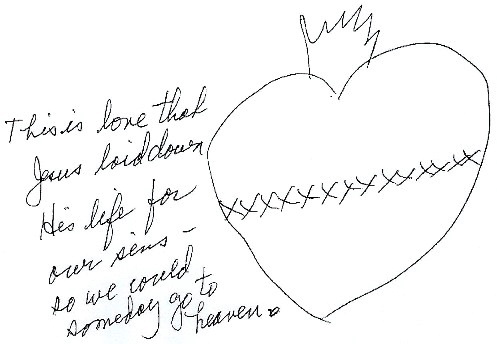 This is love that
Jesus laid down
His life for
our sins -
so we could
someday go to
heaven.